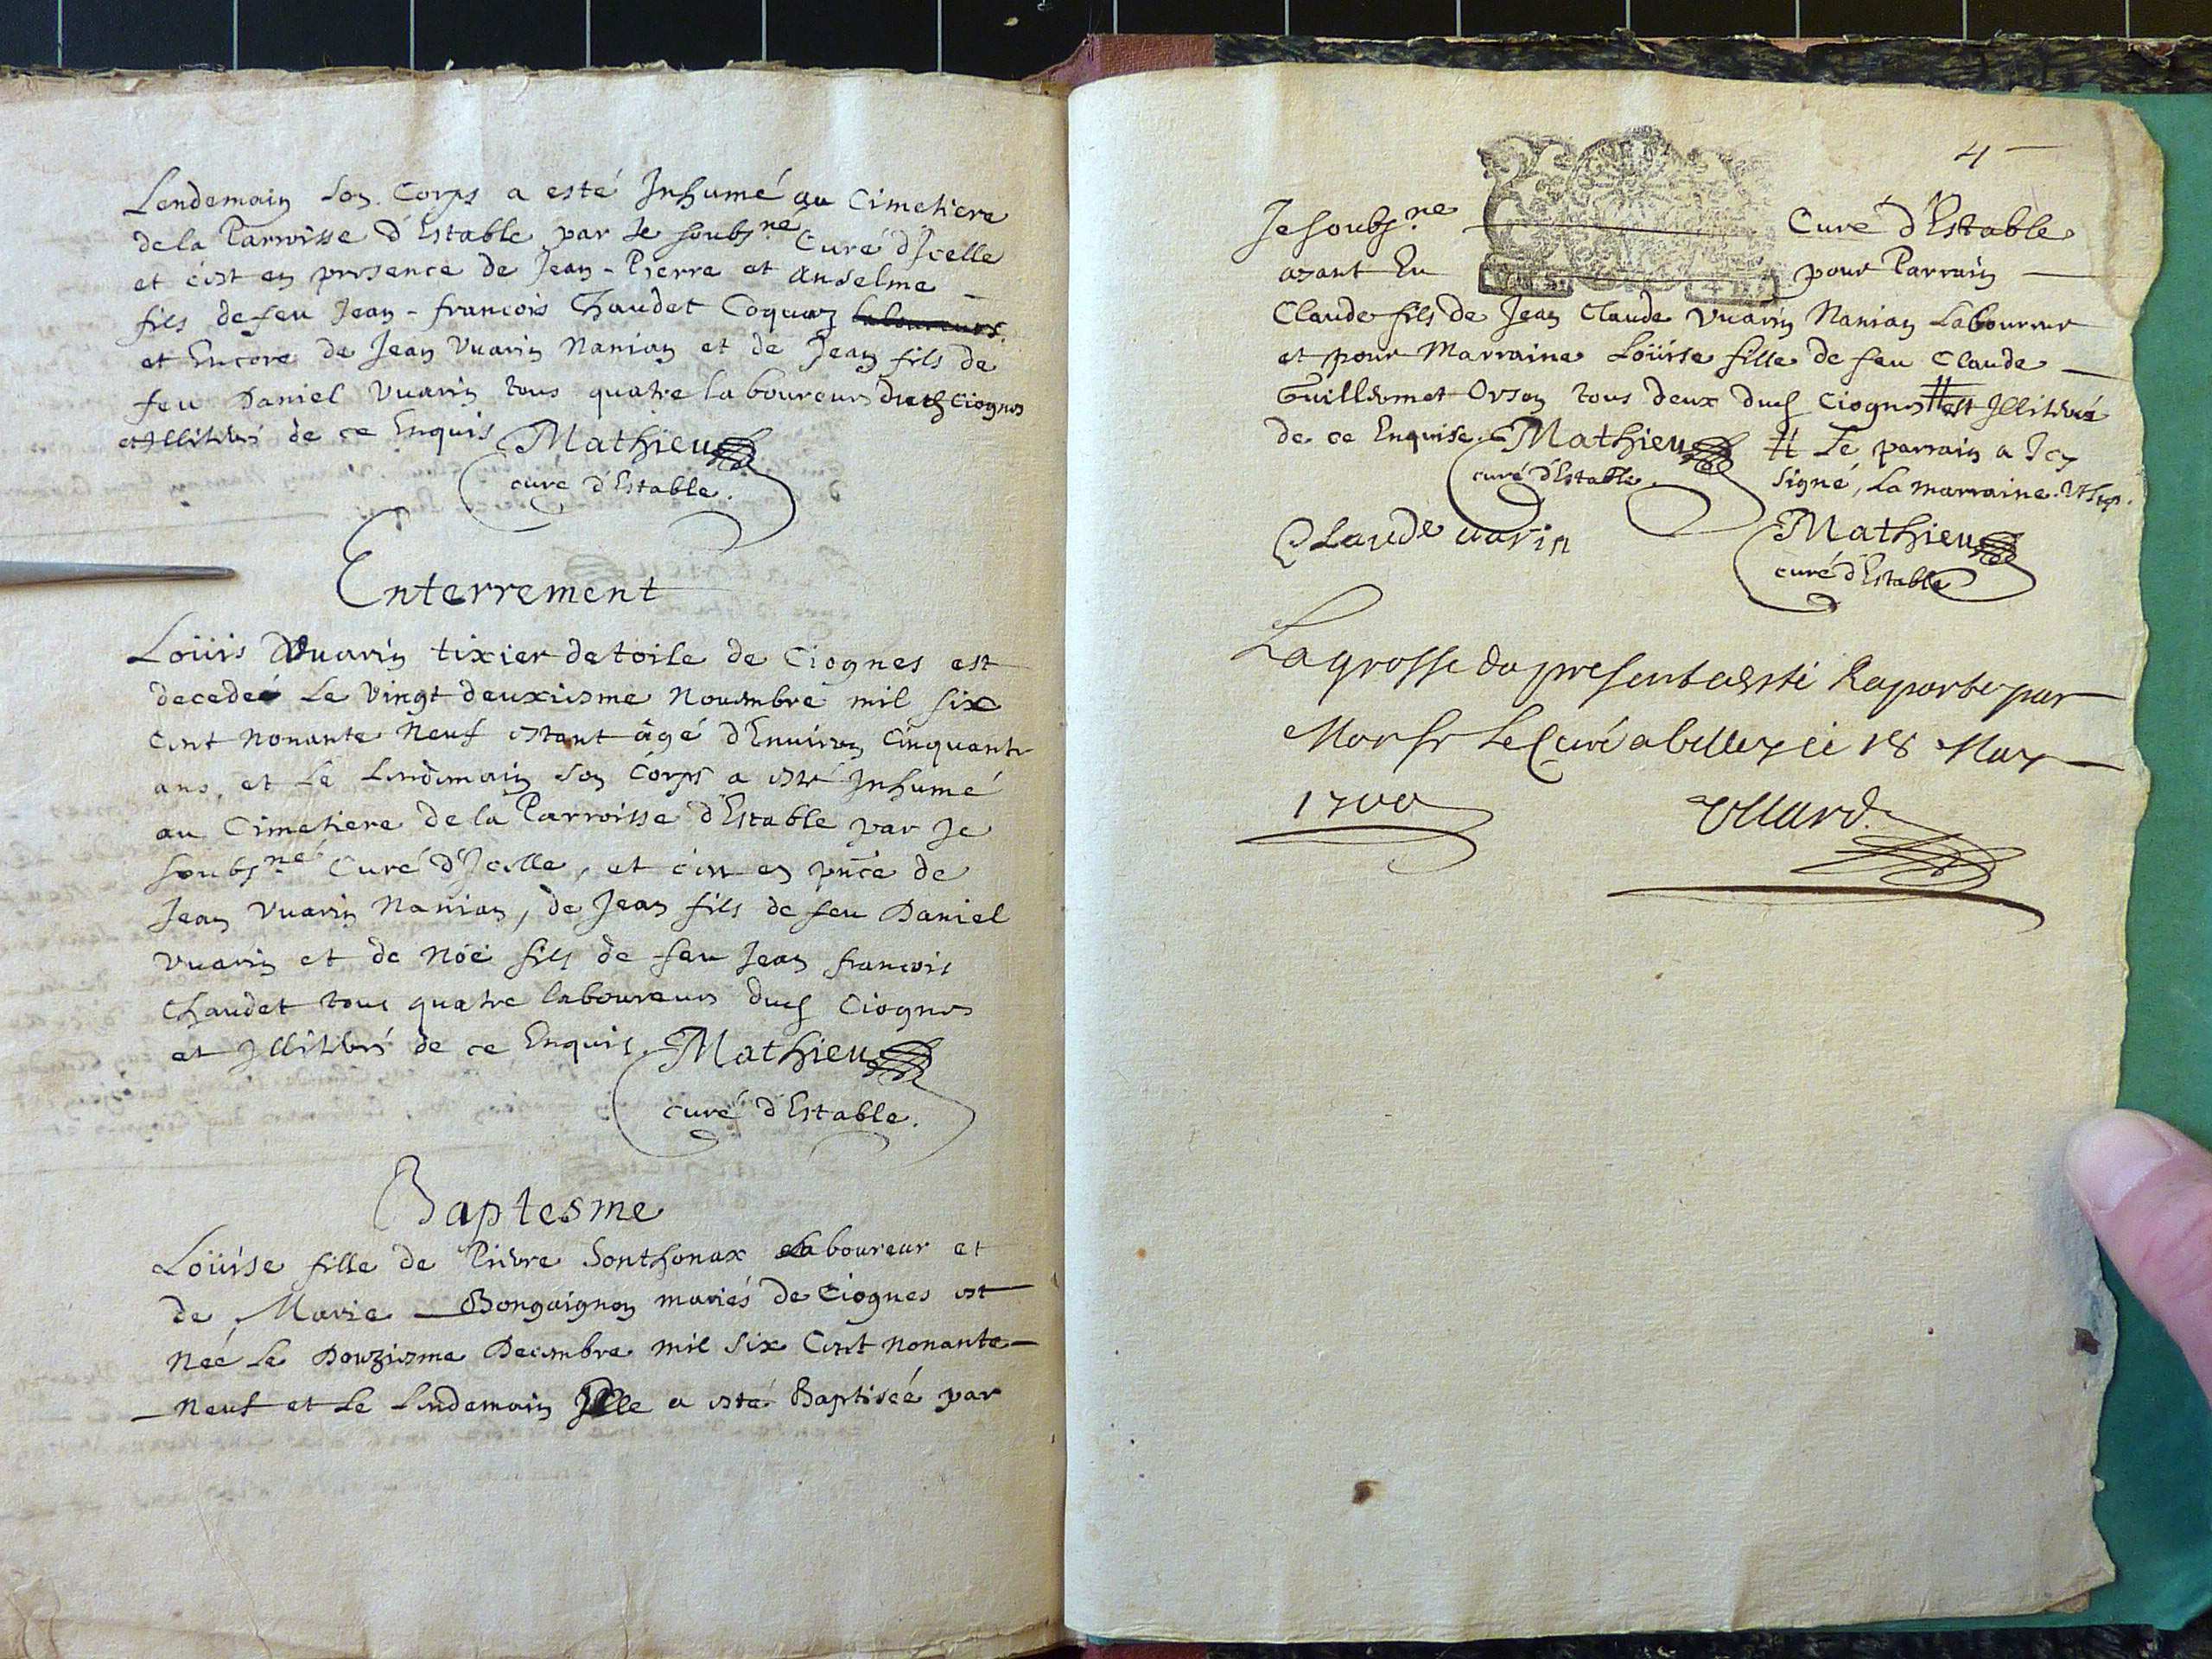 Lendemain son Corps a esté Inhumé au Cimetiere
de la Parroisse d'Estable par Je soubs.né Curé d'Jcelle
et c'est en presence de Jean-Pierre et Anselme
fils de feu Jean-francois Chaudet Coquaz laboureurs
et Encore de Jean Vuarin Nanian et de Jean fils de
feu Daniel Vuarin tous quatre laboureurs dud Ciognes
et Illitérés de ce Enquis Mathieu
curé d'Estable.
Enterrement
Loüis Vuarin tixier de toile de Ciognes est
decedeé Le Vingt deuxiesme Nouembre mil six
Cent Nonante Neuf estant âgé d'Enuiron Cinquante
ans, et Le Lendemain son Corps a esté Inhumé
au Cimetiere de la Parroisse d'Estable par Je
soubs.né Curé d'Jcelle, et c'est en pnce de
Jean Vuarin Nanian, de Jean fils de feu Daniel
Vuarin et de Noé fils de feu Jean francois
Chaudet tous quatre laboureurs dud Ciognes
et Illitérés de ce Enquis. Mathieu
curé d'Estable.
Baptesme
Loüise fille de Pierre Sonthonax Laboureur et
de Marie Bongaignon mariés de Ciognes est
Neé Le Douziesme Decembre mil six Cent Nonante
Neuf et Le Lendemain Jlle a esté Baptiseé par
4
Je soubs.ne Curé d'Estable
aÿant Eu pour Parrain
Claude fils de Jean Claude Vuarin Nanian Laboureur
et pour Marraine Loüise fille de feu Claude
Guillermet Orson tous deux dud Ciognes # est Jllitéré
de ce Enquise. Mathieu # Le parrain a Jcy
curé d'Estable. signé, La marraine
Claude uarin Mathieu
curé d'Estable
La grosse du present a esté Raporté par
Monsr Le Curé a belley ce 18 May
1700